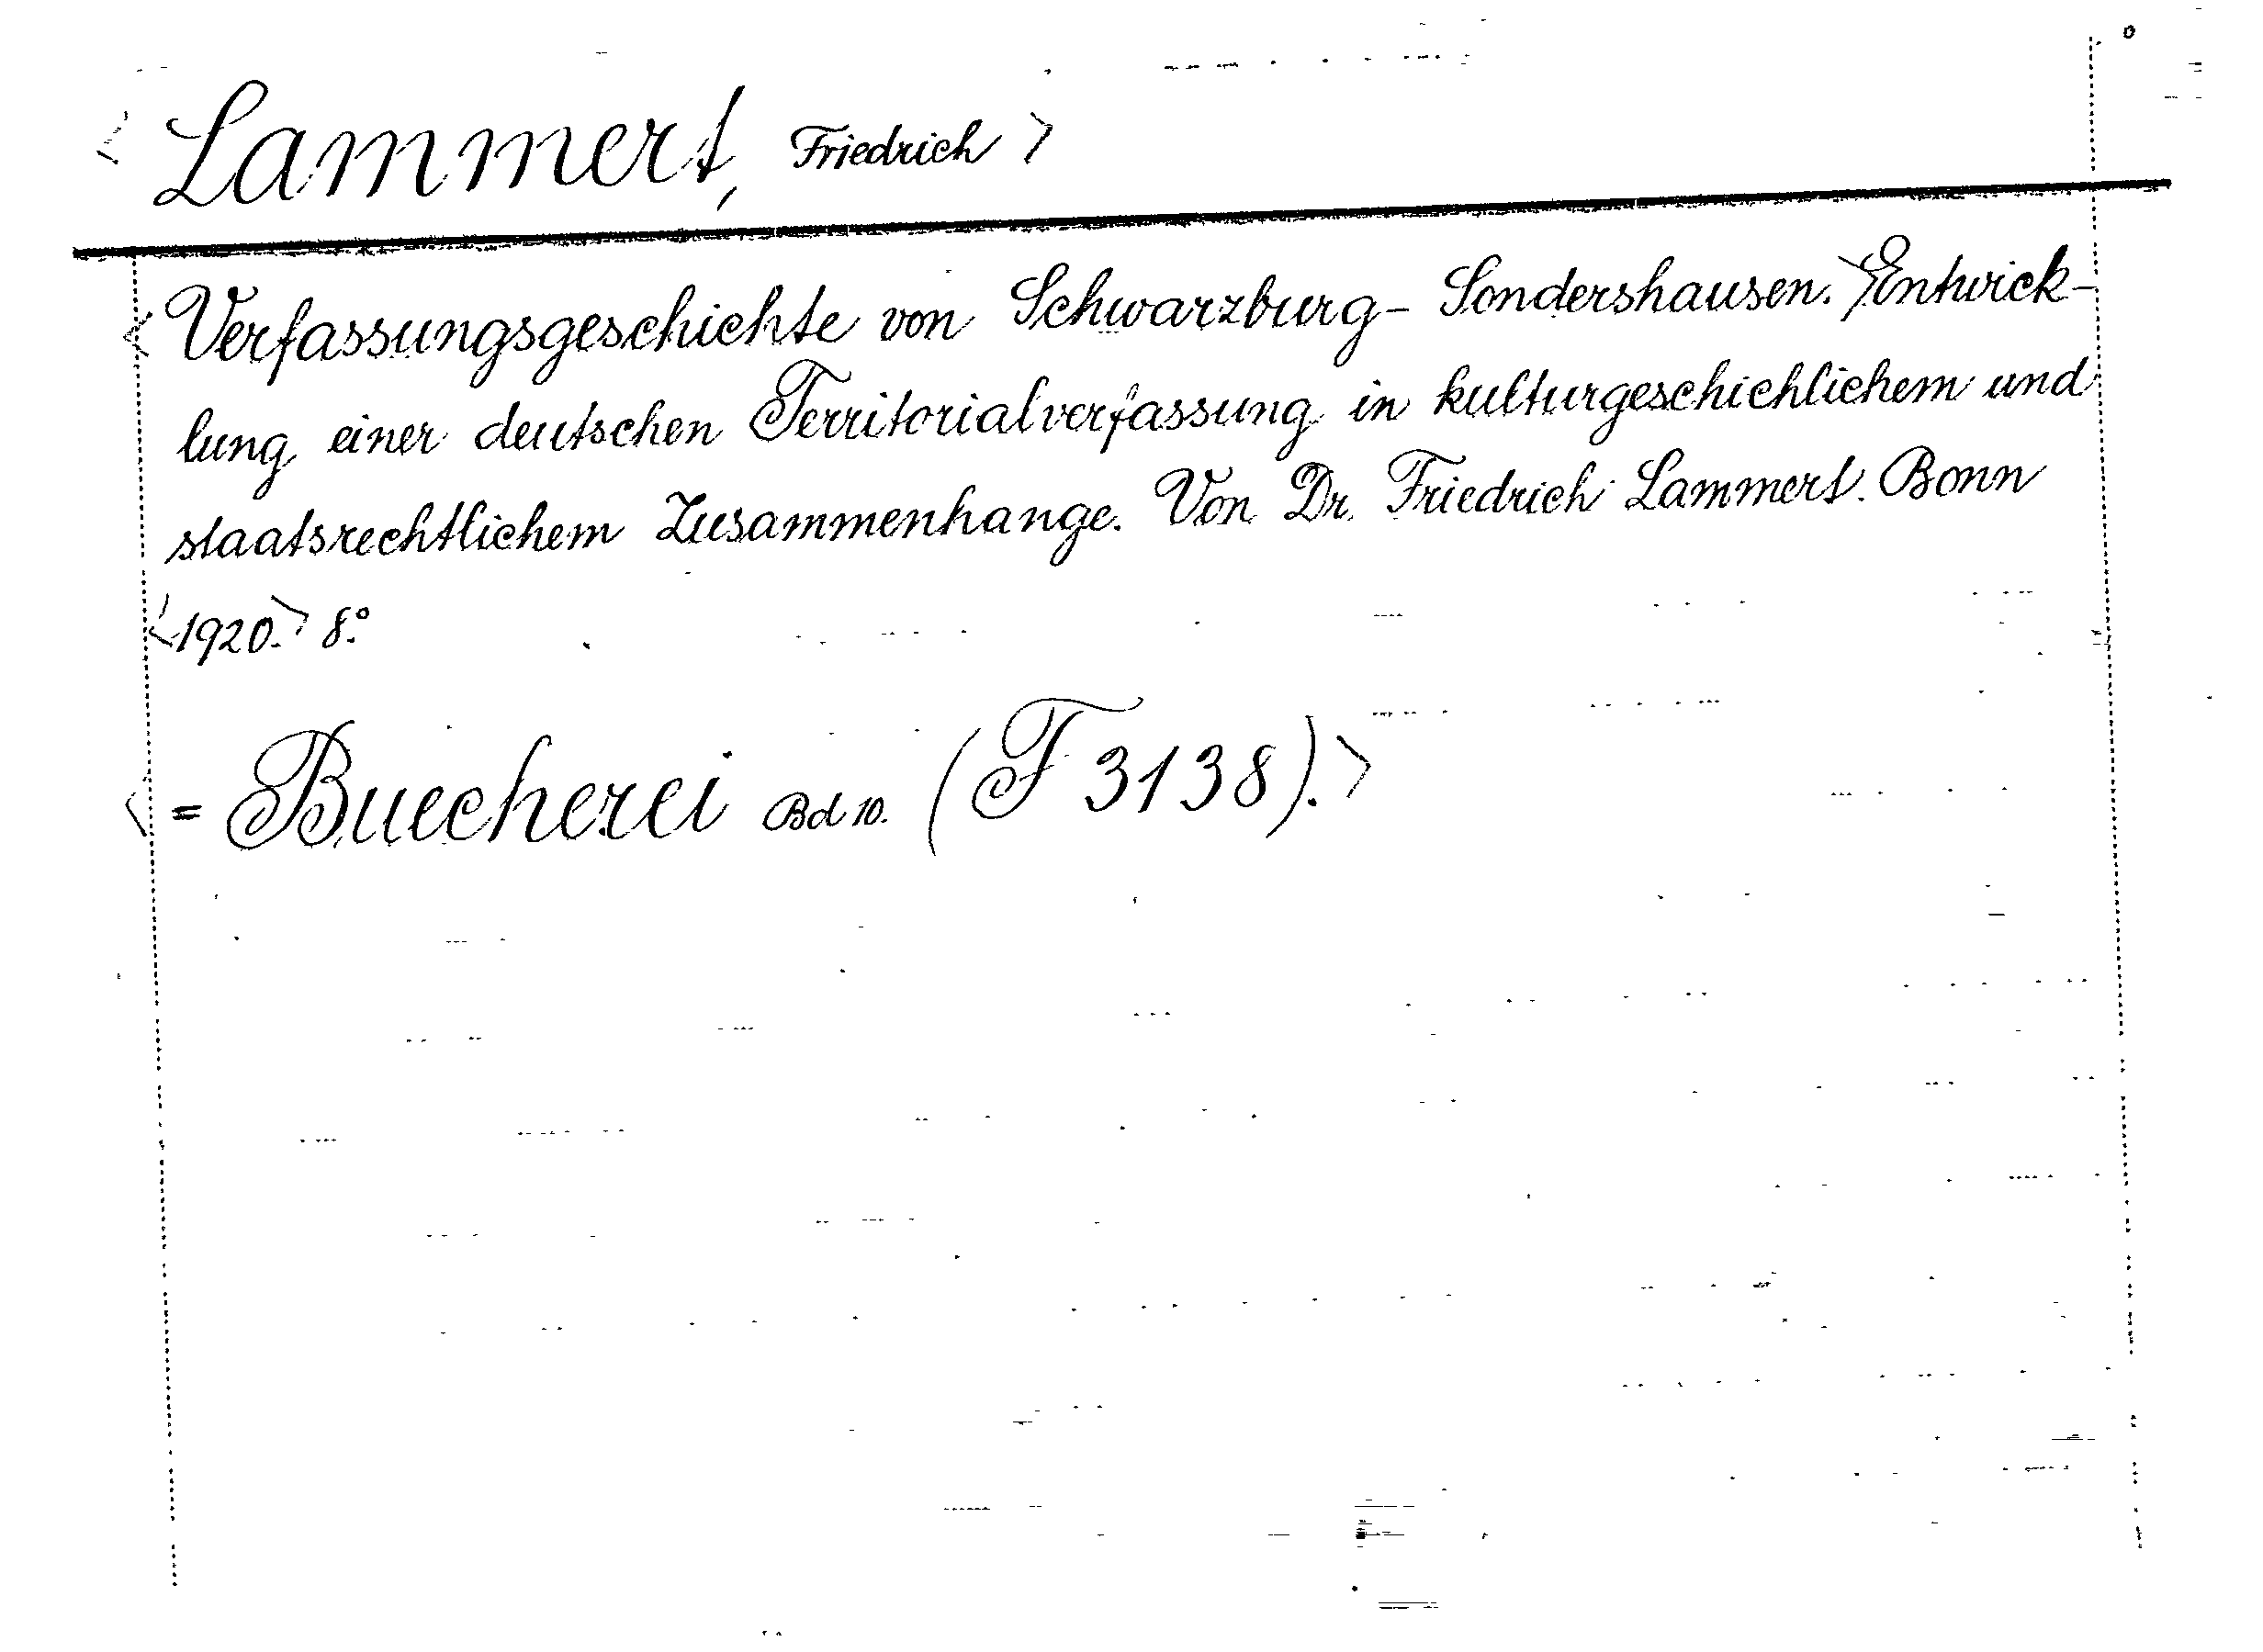 <Lammert, Friedrich>
<Verfassungsgeschichte von Schwarzburg-Sondershausen.> Entwick-
lung einer deutschen Territorialverfassung in kulturgeschichlichem und
staatsrechtlichem Zusammenhange. Von Dr. Friedrich Lammert. Bonn
<1920.> 8.°
<= Buecherei Bd 10. (F 3138).>